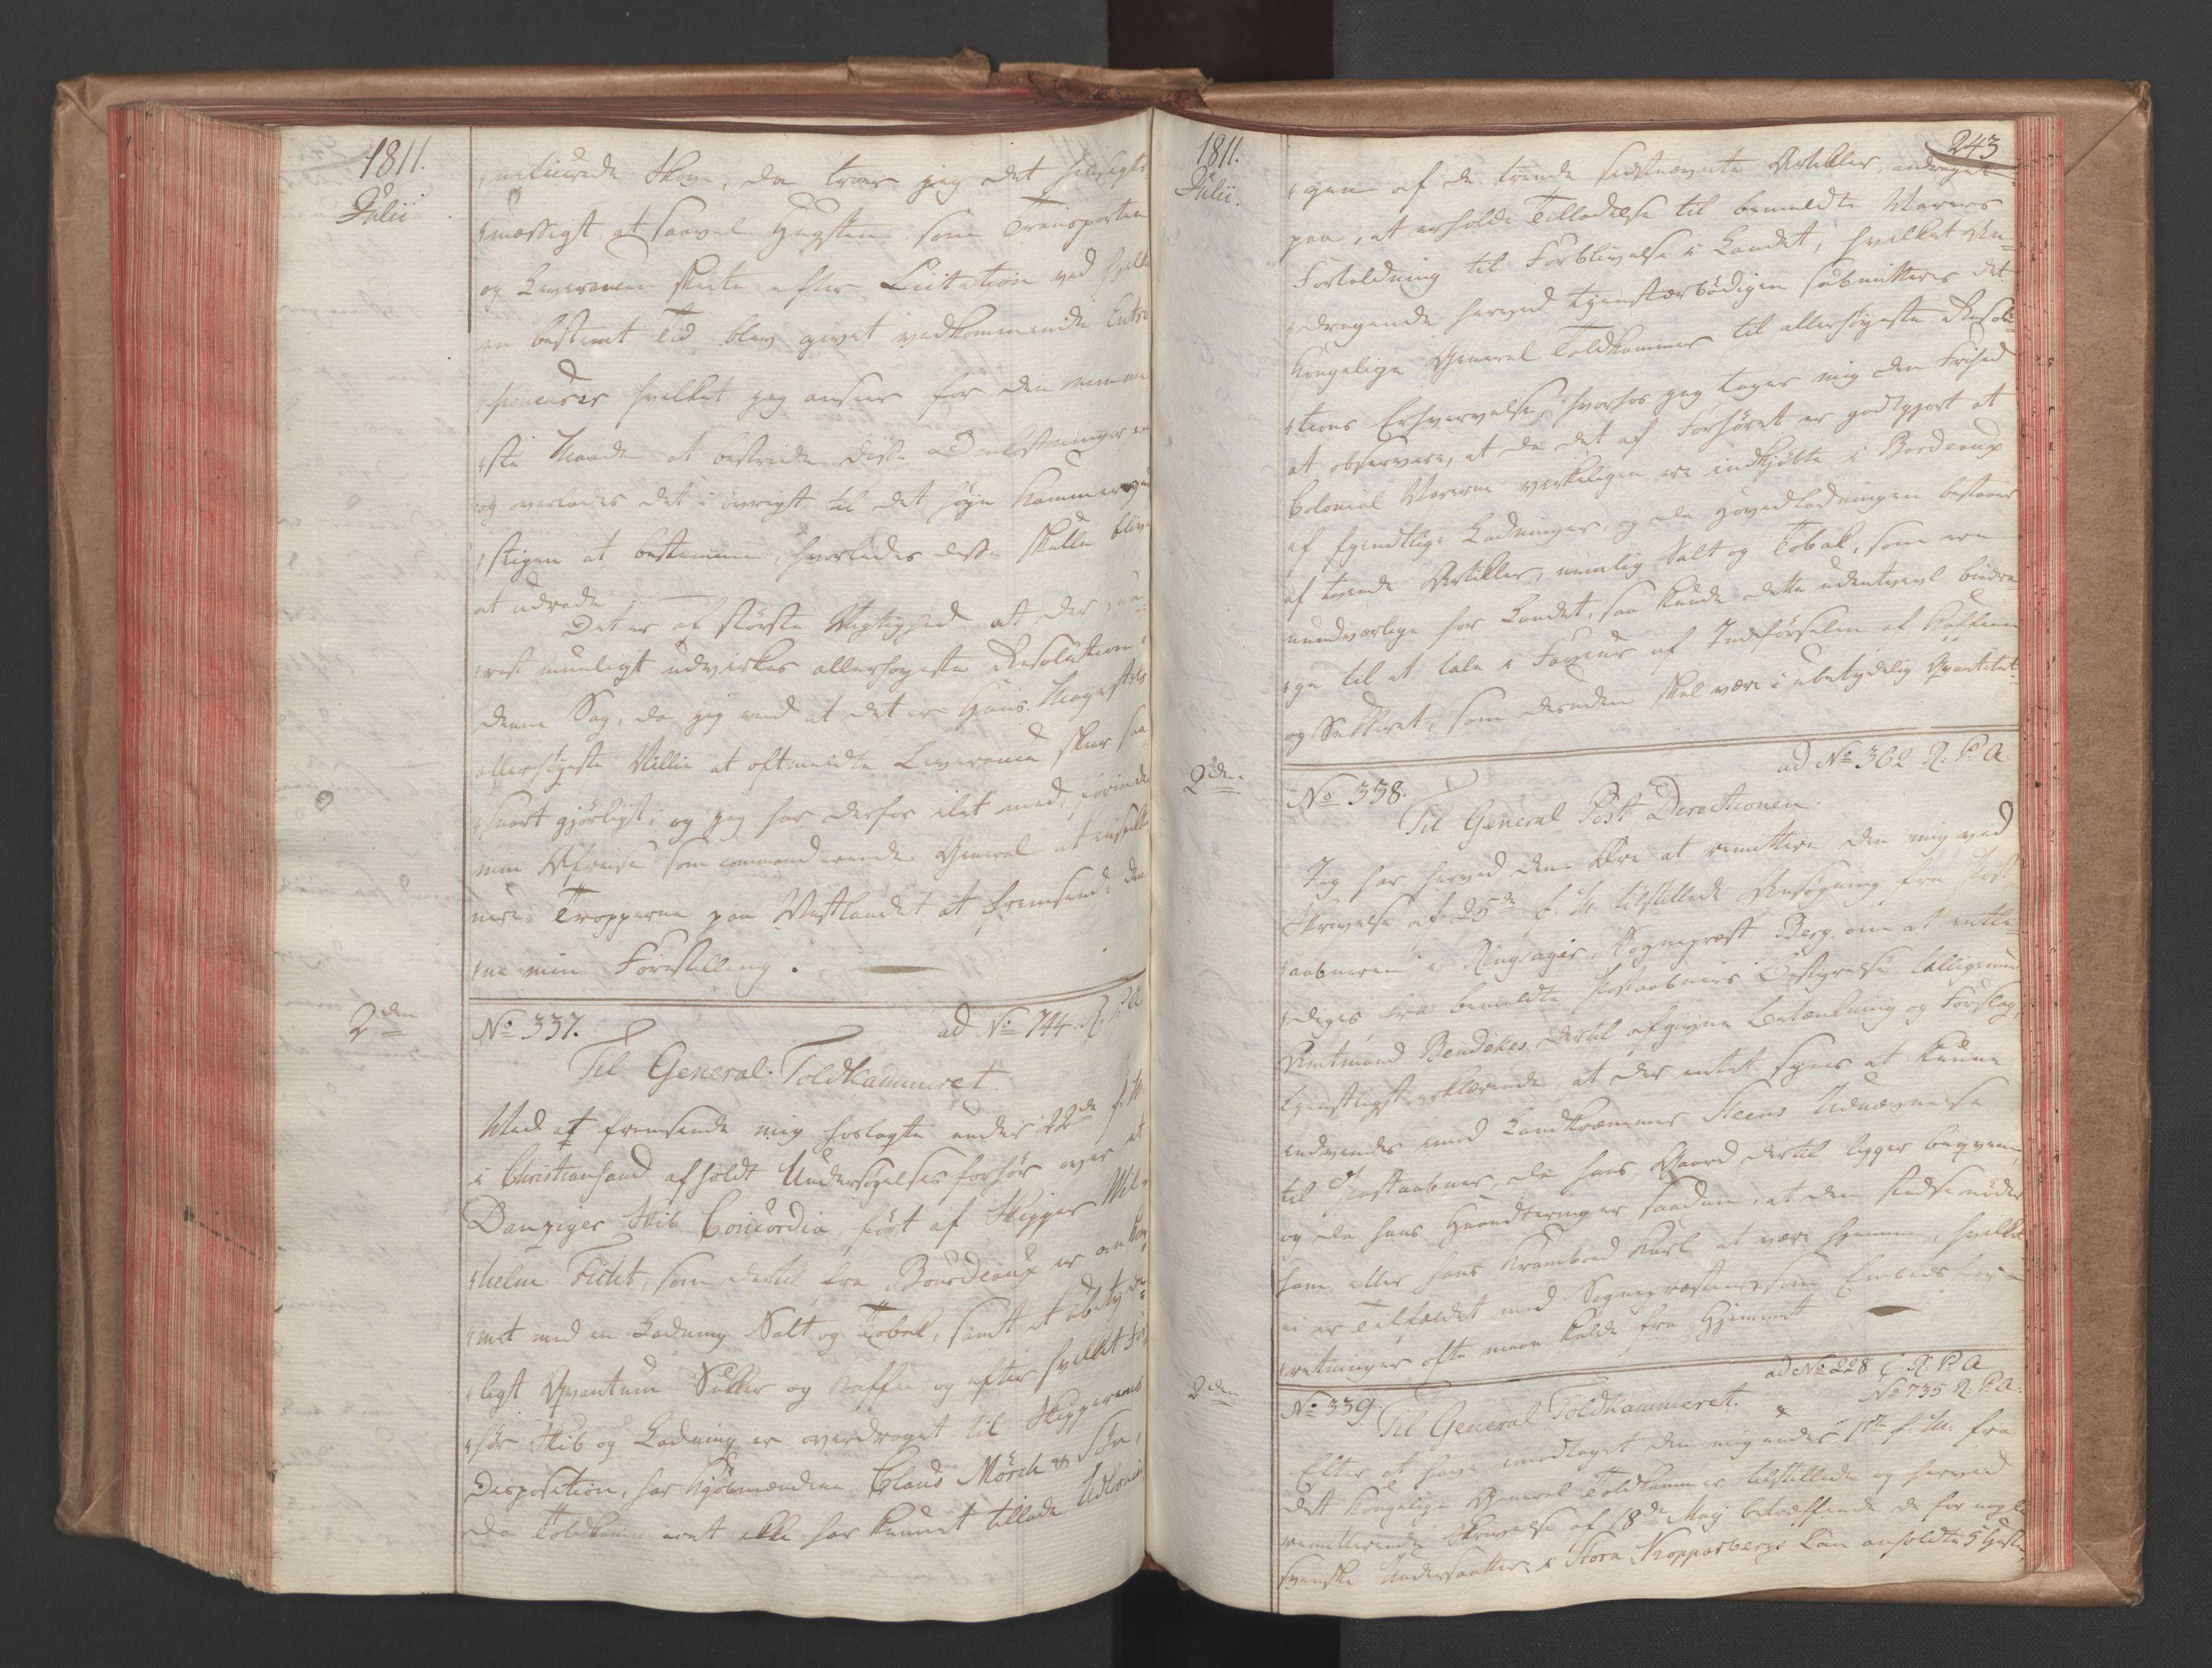 1811.
Julii
Skove, da troer jeg det hensigts
mæssigt at saavel Hugsten som Transporten
og Leverancen skeete efter Licitation ved hvilke
en bestemt Tid blev givet vedkommende Entre
preneurer hvilket jeg anseer for den nemme
ste Maade at bestride disse Omkostninger paa
og overlades det i øvrigt til det høje Kammer
at bestemme, hvorledes disse skulle blive
at udrede. —
Det er af største Vigtighed at der sna-
rest mueligt udvirkes allerhøyeste Resolution i
denne Sag, da jeg veed at det er Hans Mayestæts
allerhøyeste Villie at oftmeldte Leverance skeer saa
snart gjørligt, og jeg har derfor ilet med, forinden
min Afreise som commanderende General at inspice
rere Tropperne paa Vestlandet at fremsende den
ne min Forestilling. —
2den
No 337. ad No 744 R. P. A
Til General-Toldkammeret.
Ved at fremsende mig hoslagte under 22de f. M.
i Christiansand afholdt Undersøgelsesforhør over et
Danziger Skib Concordia, ført af Skipper Wil-
helm Ficht, som dertil fra Bourdeaux er ankom
met med en Ladning Salt og Tobak, samt et ubetyde-
ligt Qvantum Sukker og Kaffe og efter hvilket For
hør Skib og Ladning er overdraget til Skipperens
Disposition, har Kjøbmændene Claus Mörch & Sön,
da Toldkammeret ikke har kunnet tillade Udlosnin
1811.
Julii.
243
gen af de tvende sidstnævnte Artikler, andraget
paa, at erholde Tilladelse til bemeldte Varers
Fortoldning til Forblivelse i Landet, hvilket An-
dragende herved tjenstærbødigen submitteres det
Kongelige General Toldkammer til allerhøyeste Resolu-
tions Erhvervelse, hvorhos jeg tager mig den Frihed
at observere, at da det af Forhøret er godtgjort at
Colonial Varerne verkeligen ere indkjøbte i Bordeaux
af fiendtlige Ladninger, og da Hovedladningen bestaaer
af tvende Artikler, nemlig Salt og Tobak, som ere
uundværlige for Landet, saa kunde dette udentvivl bidra-
ge til at tale i Faveur af Indførselen af Kaffeen
og Sukkeret, som desuden skal være i ubetydelig Qvantitet.
2den
No 338. ad No 362 R. P. A.
Til General Post Directionen.
Jeg har herved den Ære at remittere den mig ved
Skrivelse af 25de f. M. tilstillede Ansøgning fra Post
aabneren i Ringsager, Sognepræst Berg, om at entle-
diges fra bemeldte Postaabneris Bestyrelse tilligemed
Amtmand Bendekes dertil afgivne Betænkning og Forslag,
tjenstligst erklærende, at der intet synes at kunne
indvendes mod Landkræmmer Steens Udnævnelse
til Postaabner, da hans Gaard dertil ligger beqvem,
og da hans Haandteringer saadan, at den stedse nøder
ham eller hans Krambod Karl at være hjemme, hvilket
ei er Tilfældet med Sognepræsten, som Embedsfor-
retninger ofte maae kalde fra Hjemmet —
2den
No 339. ad No 228 C. R. P. A
Til General Toldkammeret. & No 735 R. P. A.
Efter at have modtaget den mig under 1ste f. M. fra
det Kongelige General Toldkammer tilstillede og herved
remitterende Skrivelse af 18de May betræffende de for nogle
svenske Undersaatter i Stora Kopparbergs Län anholdte 5 Heste,